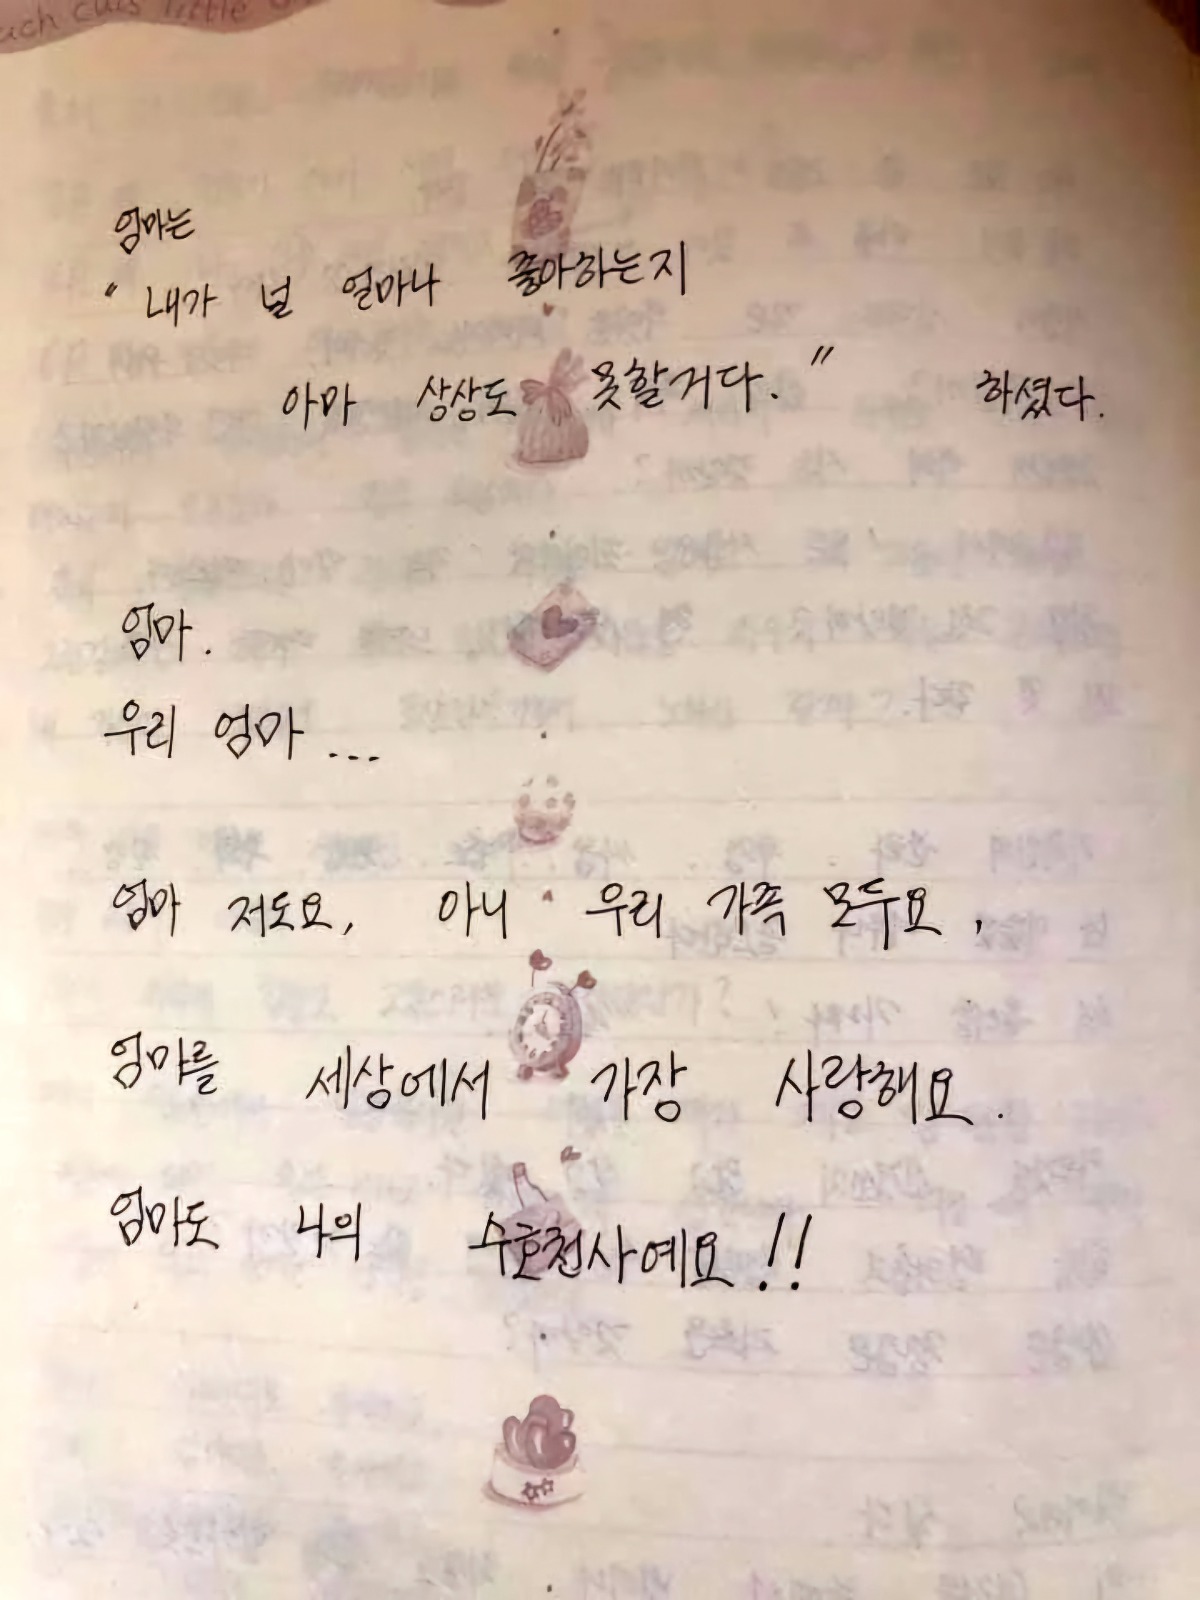 엄마는
" 내가 널 얼마나 좋아하는지
아마 상상도 못할거다. " 하셨다.
엄마.
우리 엄마...
엄마 저도요, 아니 우리 가족 모두요,
엄마를 세상에서 가장 사랑해요.
엄마도 나의 수호천사예요!!